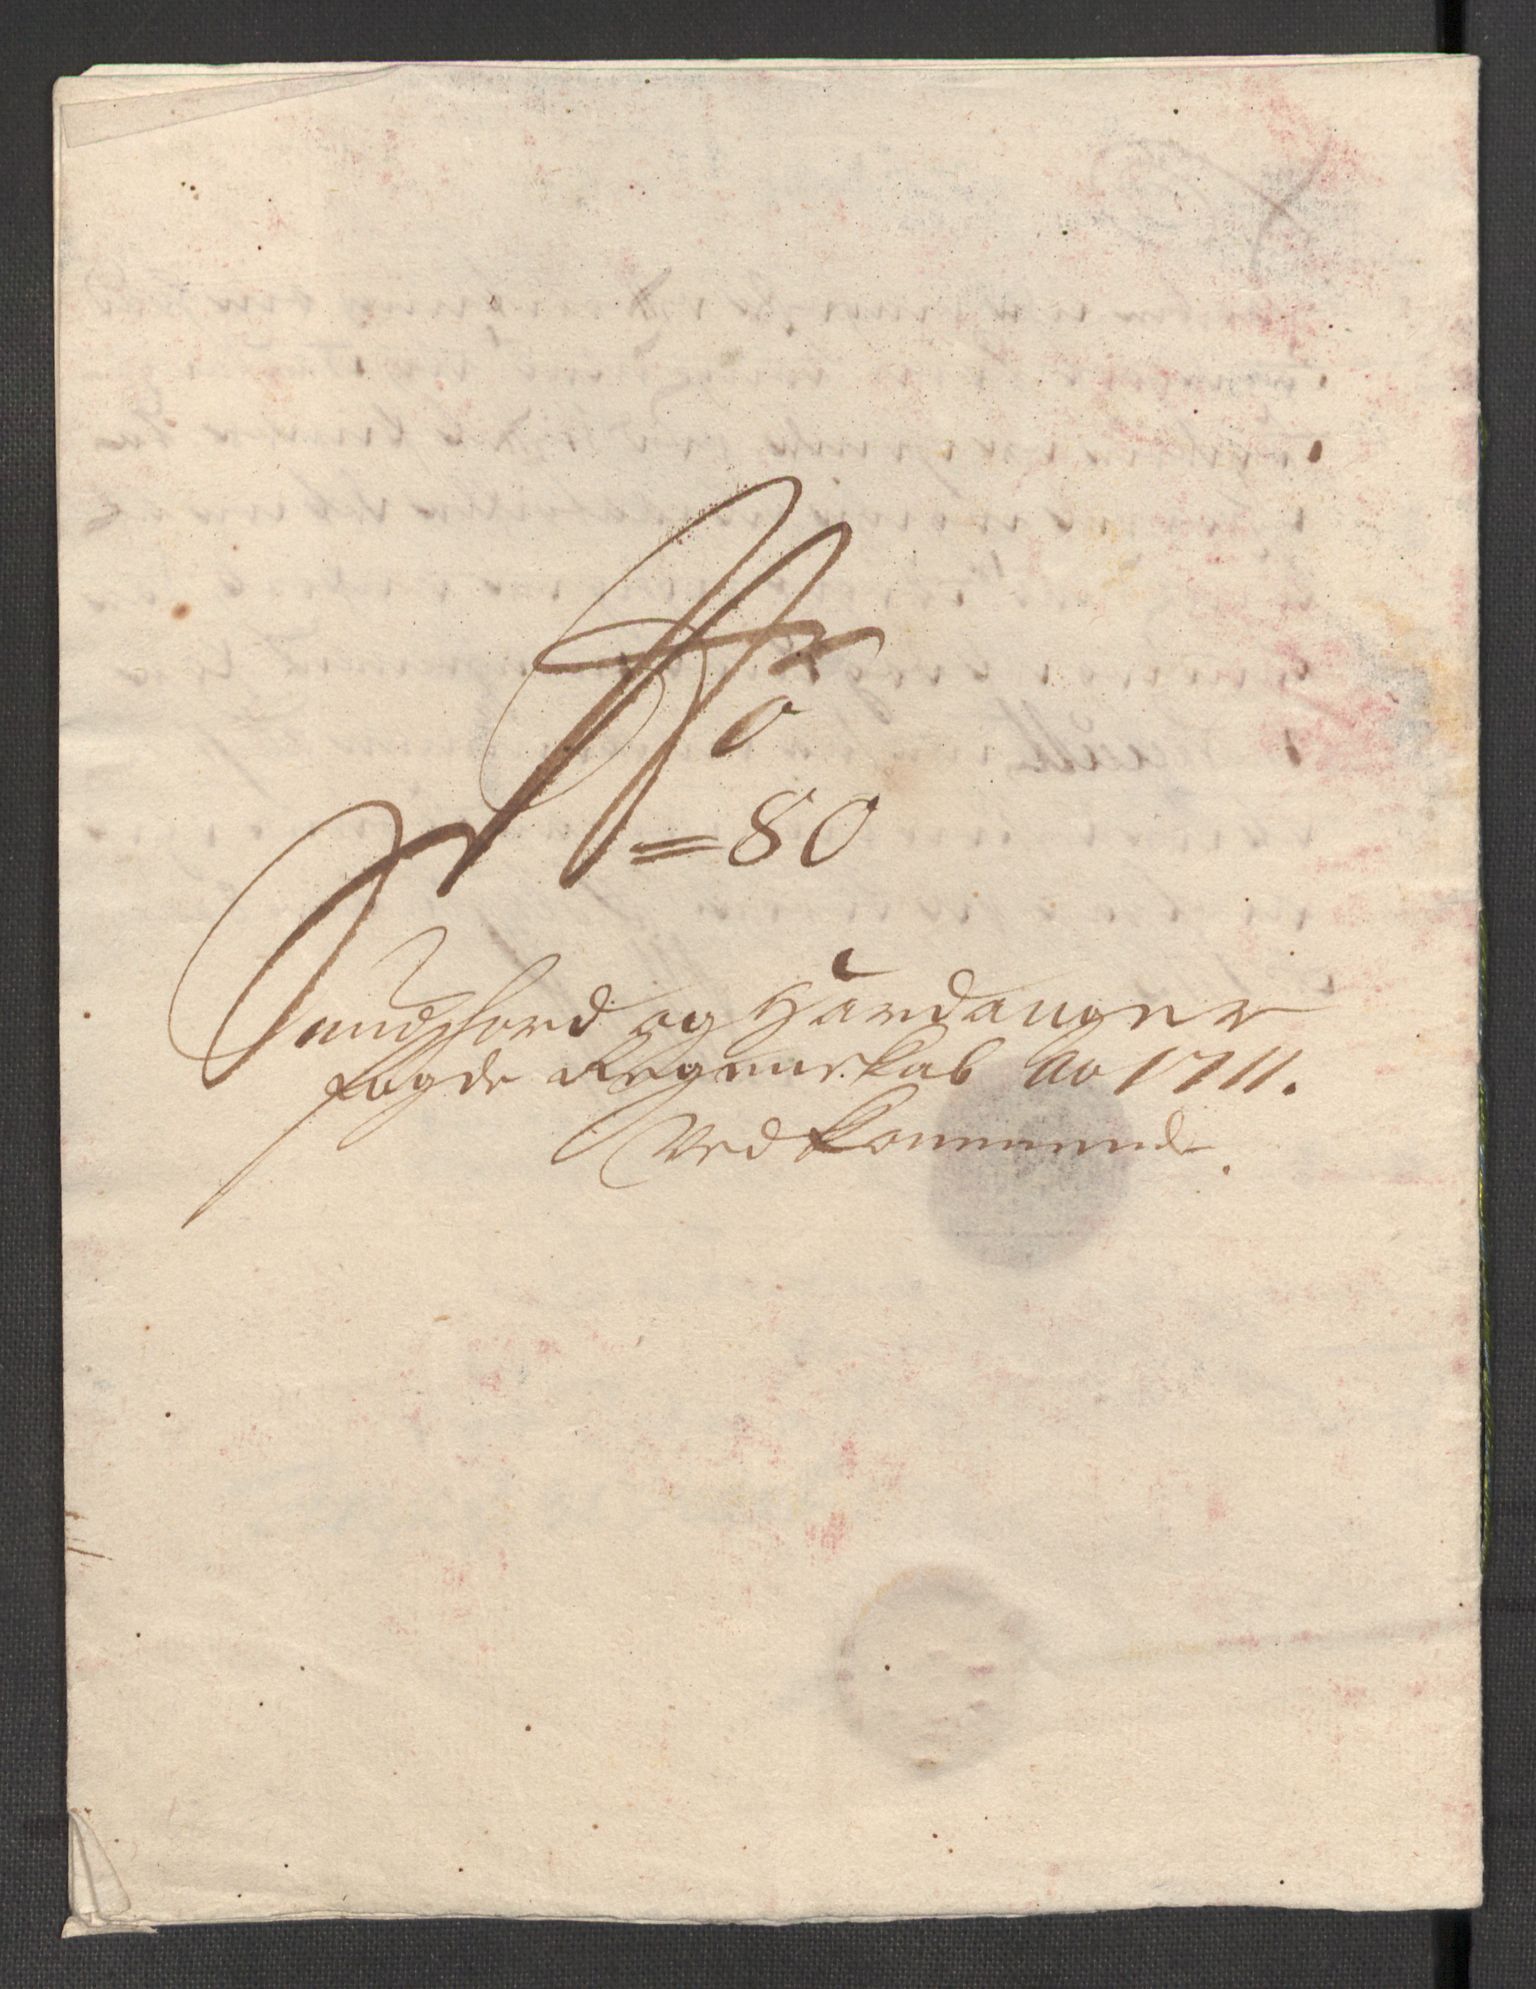 No
= 80
Sundhord og Hardanger
fogde Regenskab Ao 1711.
Vedkommende.